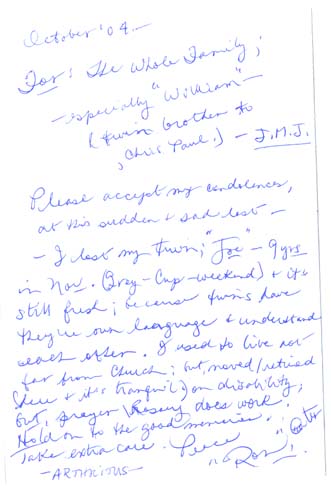 October '04 —
For: The Whole Family;
— especially "William" —
(twin brother to
Chris Paul.) — J.M.J.
Please accept my condolences,
at this sudden & sad lost —
— I lost my twin; "Joe" — 9 yrs
in Nov. (Grey-Cup-weekend) & it's
still fresh; because twins have
they're own language & understand
each other. I used to live not
far from Church; but, moved/retired
(here & it's tranquil) on disability;
but, prayer \Rosary does work.
Hold on to the good memories.
Take extra care. Peace
— — "Ron"